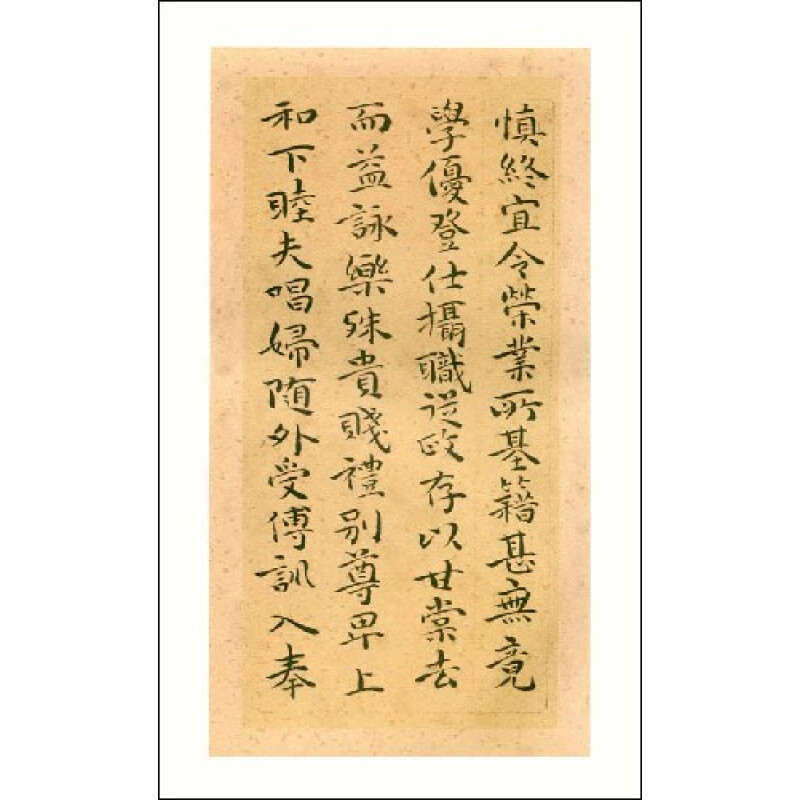 慎終宜令榮業所基籍甚無竟
學優登仕攝職從政存以甘棠去
而益詠樂殊貴賤禮別尊卑上
和下睦夫唱婦随外受傅訓入奉